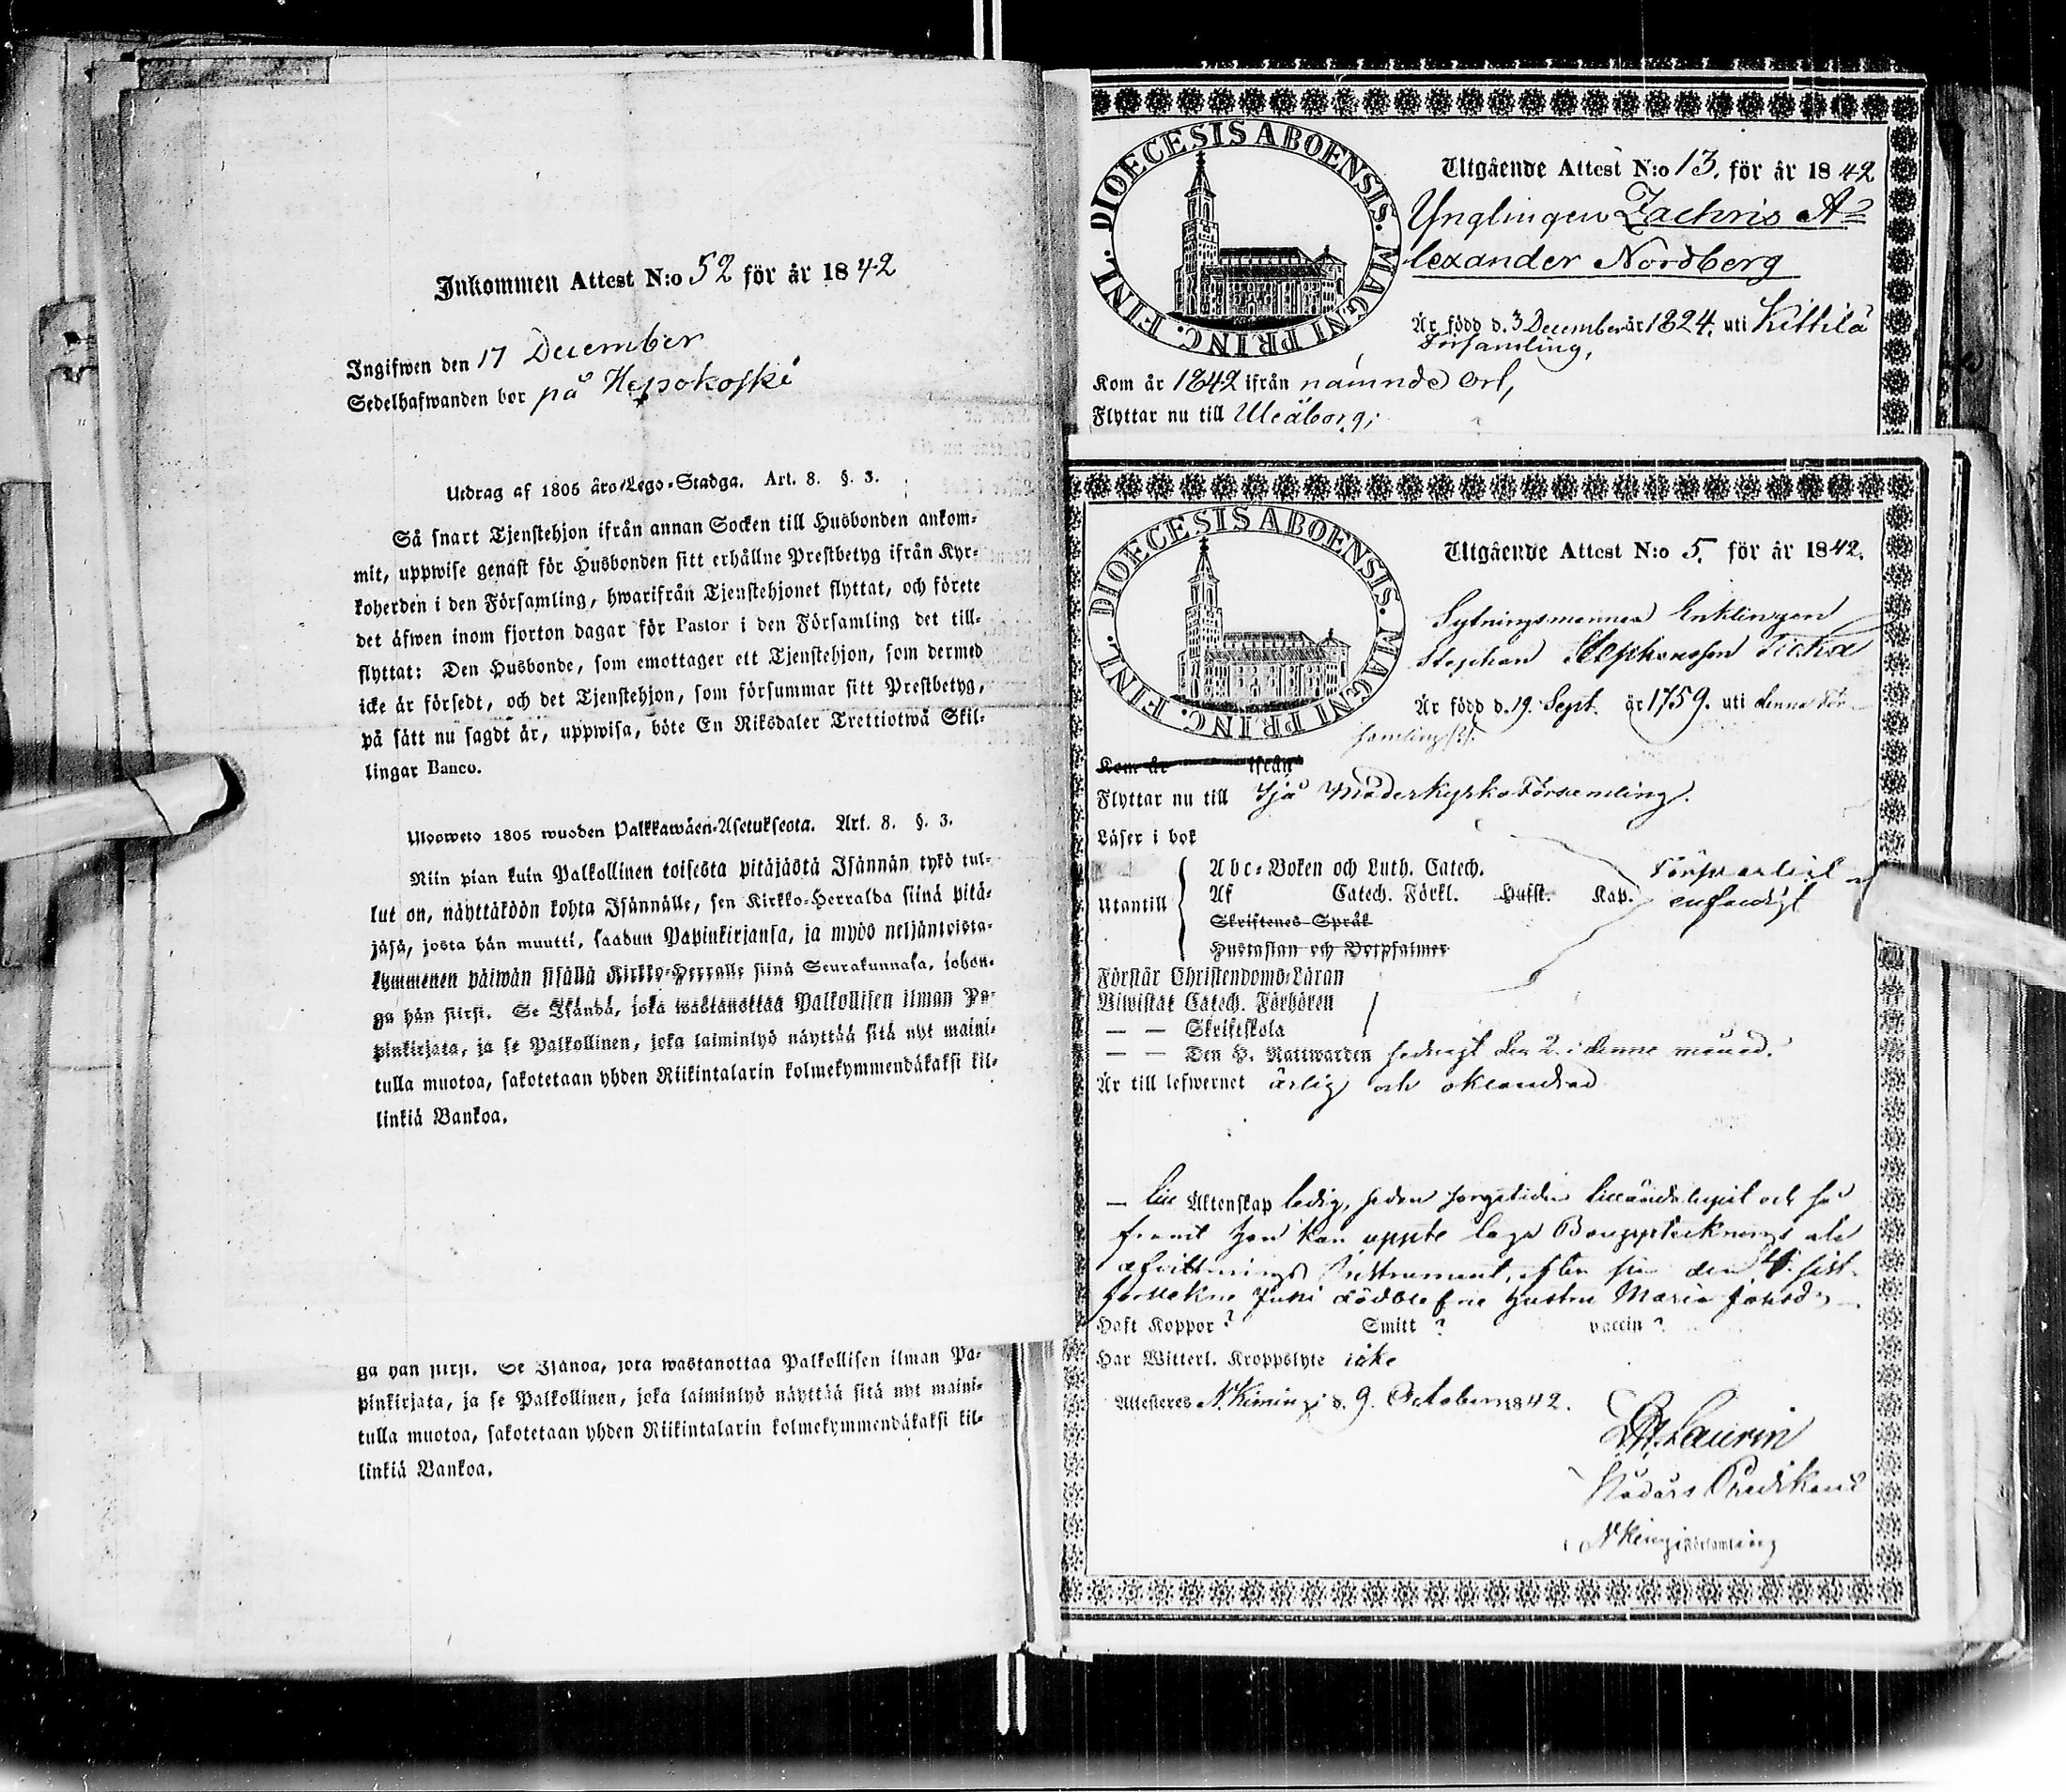 Inkommen Attest N:o 52 för år 1842
Ingifwen den 17 December
Sedelhafwanden bor på Hepokoski
Utdrag af 1805 års Lego-Stadga. Art. 8. §. 3.
Så snart Tjenstehjon ifrån annan Socken till Husbonden ankom-
mit, uppwise genast för Husbonden sitt erhållne Prestbetyg ifrån Kyr-
koherden i den Församling, hwarifrån Tjenstehjonet flyttat, och förete
det äfwen inom fjorton dagar för Pastor i den Församling det till-
flyttat: Den Husbonde, som emottager ett Tjenstehjon, som dermed
icke är försedt, och det Tjenstehjon, som försummar sitt Prestbetyg,
på sätt nu sagdt är, uppwisa, böte En Riksdaler Trettiotwå Skil-
lingar Banco.
Ulosweto 1805 wuoden Palkkawäen-Asetuksesta. Art. 8. §. 3.
Niin pian kuin Palkollinen toisesta pitäjästä Isännän tykö tul-
lut on, näyttäköön kohta Isännälle, sen Kirkko-Herralda siinä pitä-
jäsä, josta hän muutti, saadun Papinkirjansa, ja myös neljäntoista-
kymmenen päiwän sisällä Kirkko-Herralle siinä Seurakunnasa, johon-
ga hän siirsi. Se Isändä, joka wastanottaa Palkollisen ilman Pa-
pinkirjata, ja se Palkollinen, joka laiminlyö näyttää sitä nyt maini-
tulla muotoa, sakotetaan yhden Riikintalarin kolmekymmendäkaksi kil-
linkiä Bankoa.
ga hän siirsi. Se Isändä, joka wastanottaa Palkollisen ilman Pa-
pinkirjata, ja se Palkollinen, joka laiminlyö näyttää sitä nyt maini-
tulla muotoa, sakotetaan yhden Riikintalarin kolmekymmendäkaksi kil-
linkiä Bankoa.
DIOECESIS ABOENSIS. MAGNI PRINC. FINL.
Utgående Attest N:o 13. för år 1842
Ynglingen Zachris A=
lexander Nordberg
Är född d. 3 December år 1824. uti Kittilä
Församling,
Kom år 1842 ifrån nämnde ort,
Flyttar nu till Uleåborg;
DIOECESIS ABOENSIS. MAGNI PRINC. FINL.
Utgående Attest N:o 5. för år 1842.
Sytningsmannen Enklingen
Stephan Stephansson
Är född d. 19. Sept. år 1759. uti denna För-
samling
Kom år ifrån
Flyttar nu till Ijo Moderkyrko Församling.
Läser i bok
Utantill
Abc-Boken och Luth. Catech.
Af Catech. Förkl. Hufst. Kap.
Skriftenes Språk
Hustaflan och Botpsalmer
enfaldigt
Förstår Christendoms-Läran
Biwistat Catech. Förhören
— — Skriftskola
— — Den H. Nattwarden sednast den 2. i denne månad.
Är till lefwernet ärlig och oklandrad
— Till Äktenskap ledig, sedan sorgetiden tilländalupit och så
framt han kan uppte laga Bouppteckning eller
afvittrings Instrument, efter sin den 4. sist-
förflutne Juni dödblefne hustru Maria Johsdr
Haft Koppor? Smitt? vaccin?
Har Witterl. Kroppslyte icke
Attesteres N.Kimingi d. 9. October 1842.
Laurin
Predikant
N Kimingi Församling